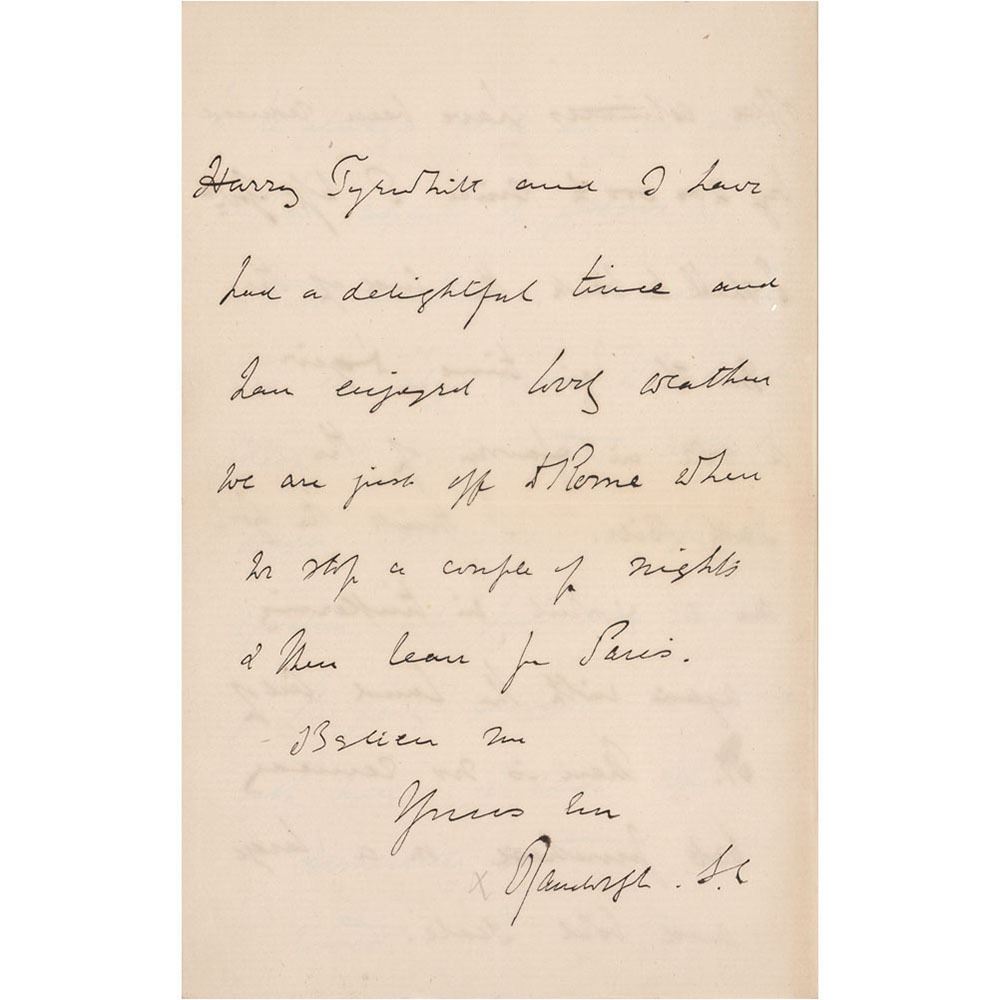 Harry Tyrwhitt and I have
had a delightful time and
have enjoyed lovely weather
we are just off to Rome where
we stop a couple of nights
& then leave for Paris.
Believe me
Yours ever
x Randolph. S. C